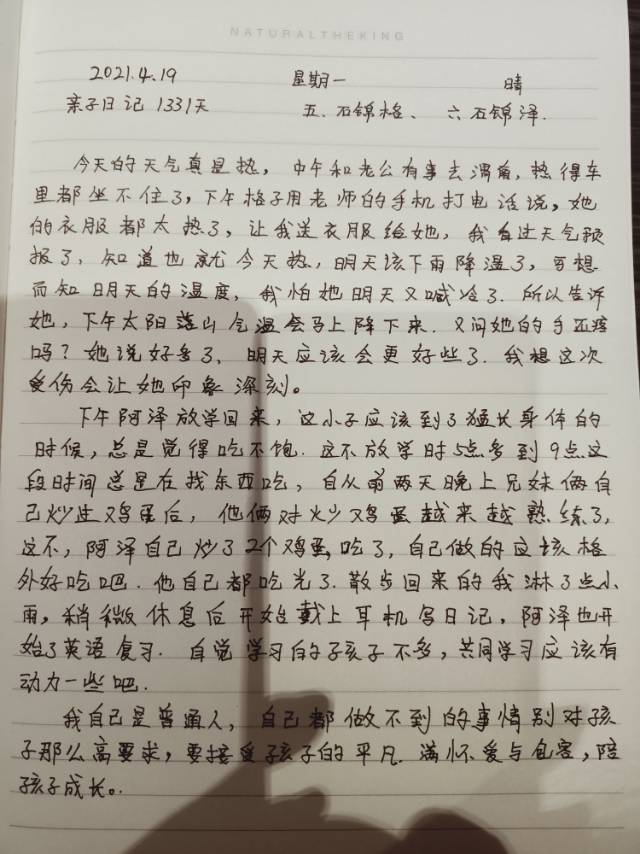 NATURALTHEKING
2021.4.19 星期一 晴
亲子日记 1331天 五.石锦格、六石锦泽.
今天的天气真是热,中午和老公有事去渭南,热得车
里都坐不住了,下午格子用老师的手机打电话说,她
的衣服都太热了,让我送衣服给她,我看过天气预
报了,知道也就今天热,明天该下雨降温了,可想
而知明天的温度,我怕她明天又喊冷了.所以告诉
她,下午太阳落山气温会马上降下来.又问她的手还疼
吗?她说好多了,明天应该会更好些了.我想这次
受伤会让她印象深刻。
下午阿泽放学回来,这小子应该到了猛长身体的
时候,总是觉得吃不饱.这不放学时5点多到9点这
段时间总是在找东西吃,自从前两天晚上兄妹俩自
己炒过鸡蛋后,他俩对炒鸡蛋越来越熟练了,
这不,阿泽自己炒了2个鸡蛋,吃了,自己做的应该格
外好吃吧.他自己都吃光了.散步回来的我淋了点小
雨,稍微休息后开始戴上耳机写日记,阿泽也开
始了英语复习.自觉学习的孩子不多,共同学习应该有
动力一些吧.
我自己是普通人,自己都做不到的事情别对孩
子那么高要求,要接受孩子的平凡.满怀爱与包容,陪
孩子成长。